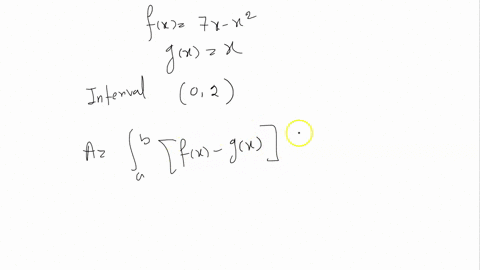 f(x)= 7x-x²
g(x) = x
Interval (0,2)
A= ∫_a^b [f(x) - g(x)]